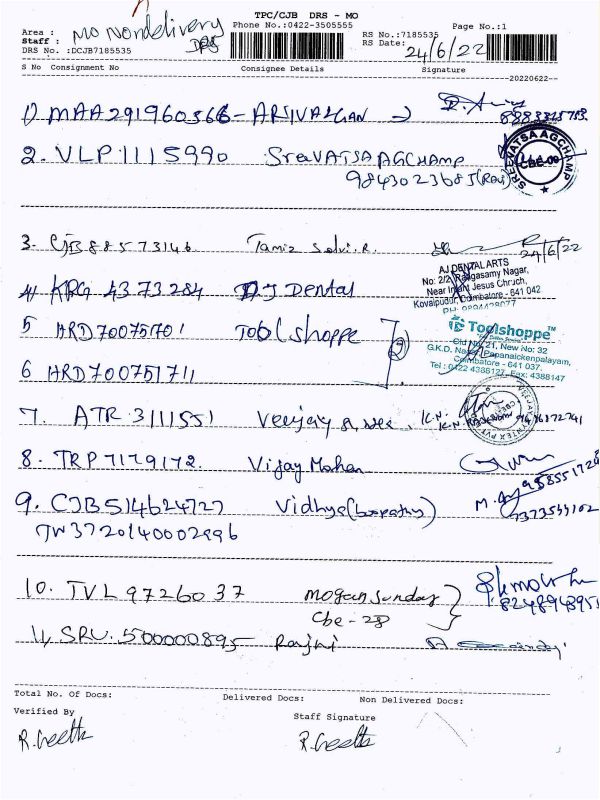 TPC/CJB DRS - MO
Area : MO Nondelivery Phone No.:0422-3505555 RS No.:7185535 Page No.:1
Staff : DRS RS Date: 24/6/22
DRS No. :DCJB7185535
S No Consignment No Consignee Details Signature
20220622
1) MAA291960366 - ARIVALGAN
2. VLP1115990 SreeVATSA AGCHAMP
9843023685 (Ravi)
SREEVATSA AGCHAMP
3. CJB88573146 Tamil Selvi.R. 24/6/22
4) KRG 4373284 AJ Dental
AJ DENTAL ARTS
No: 2/2, Rangasamy Nagar,
Near Infant Jesus Chruch,
Kovaipudur, Coimbatore - 641 042
PH: 9894428077
5 ARD700751701 Toolshoppe (2)
Toolshoppe™
Old No. 21, New No: 32
G.K.D. Nagar, Papanaickenpalayam,
Coimbatore - 641 037.
Tel : 0422 4388127, Fax: 4388147
6 ARD700751711
7. ATR 3111551 Veejay
8. TRP7179172. Vijay Mohan
9. CJB514624727 Vidhya (boopathy)
TW3720140002996 7373555102
10. TVL 9726037 Mogan Sunday
Cbe - 28
11. SRU. 500000895 Rajni
Total No. Of Docs: Delivered Docs: Non Delivered Docs:
Verified By Staff Signature
R. Geetha R. Geetha